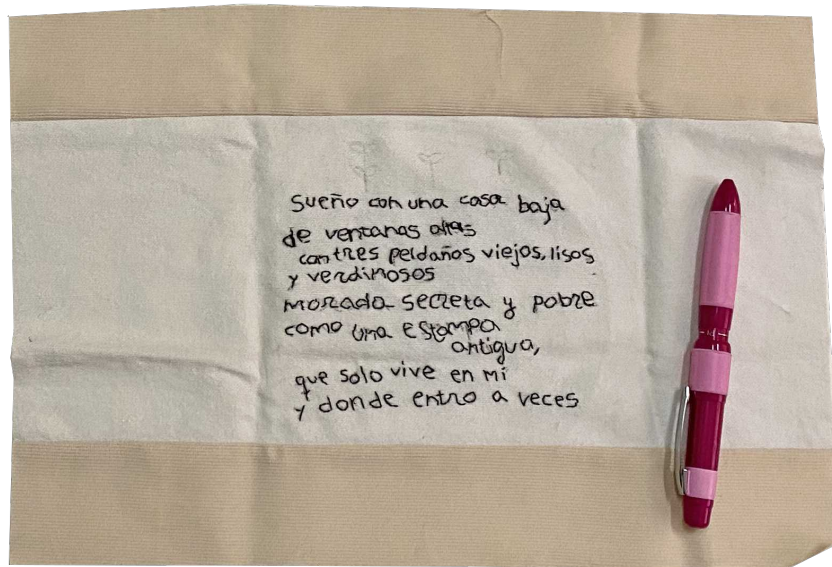 sueño con una casa baja
de ventanas altas
con tres peldaños viejos, lisos
y verdinosos
morada secreta y pobre
como una estampa
antigua,
que solo vive en mí
y donde entro a veces